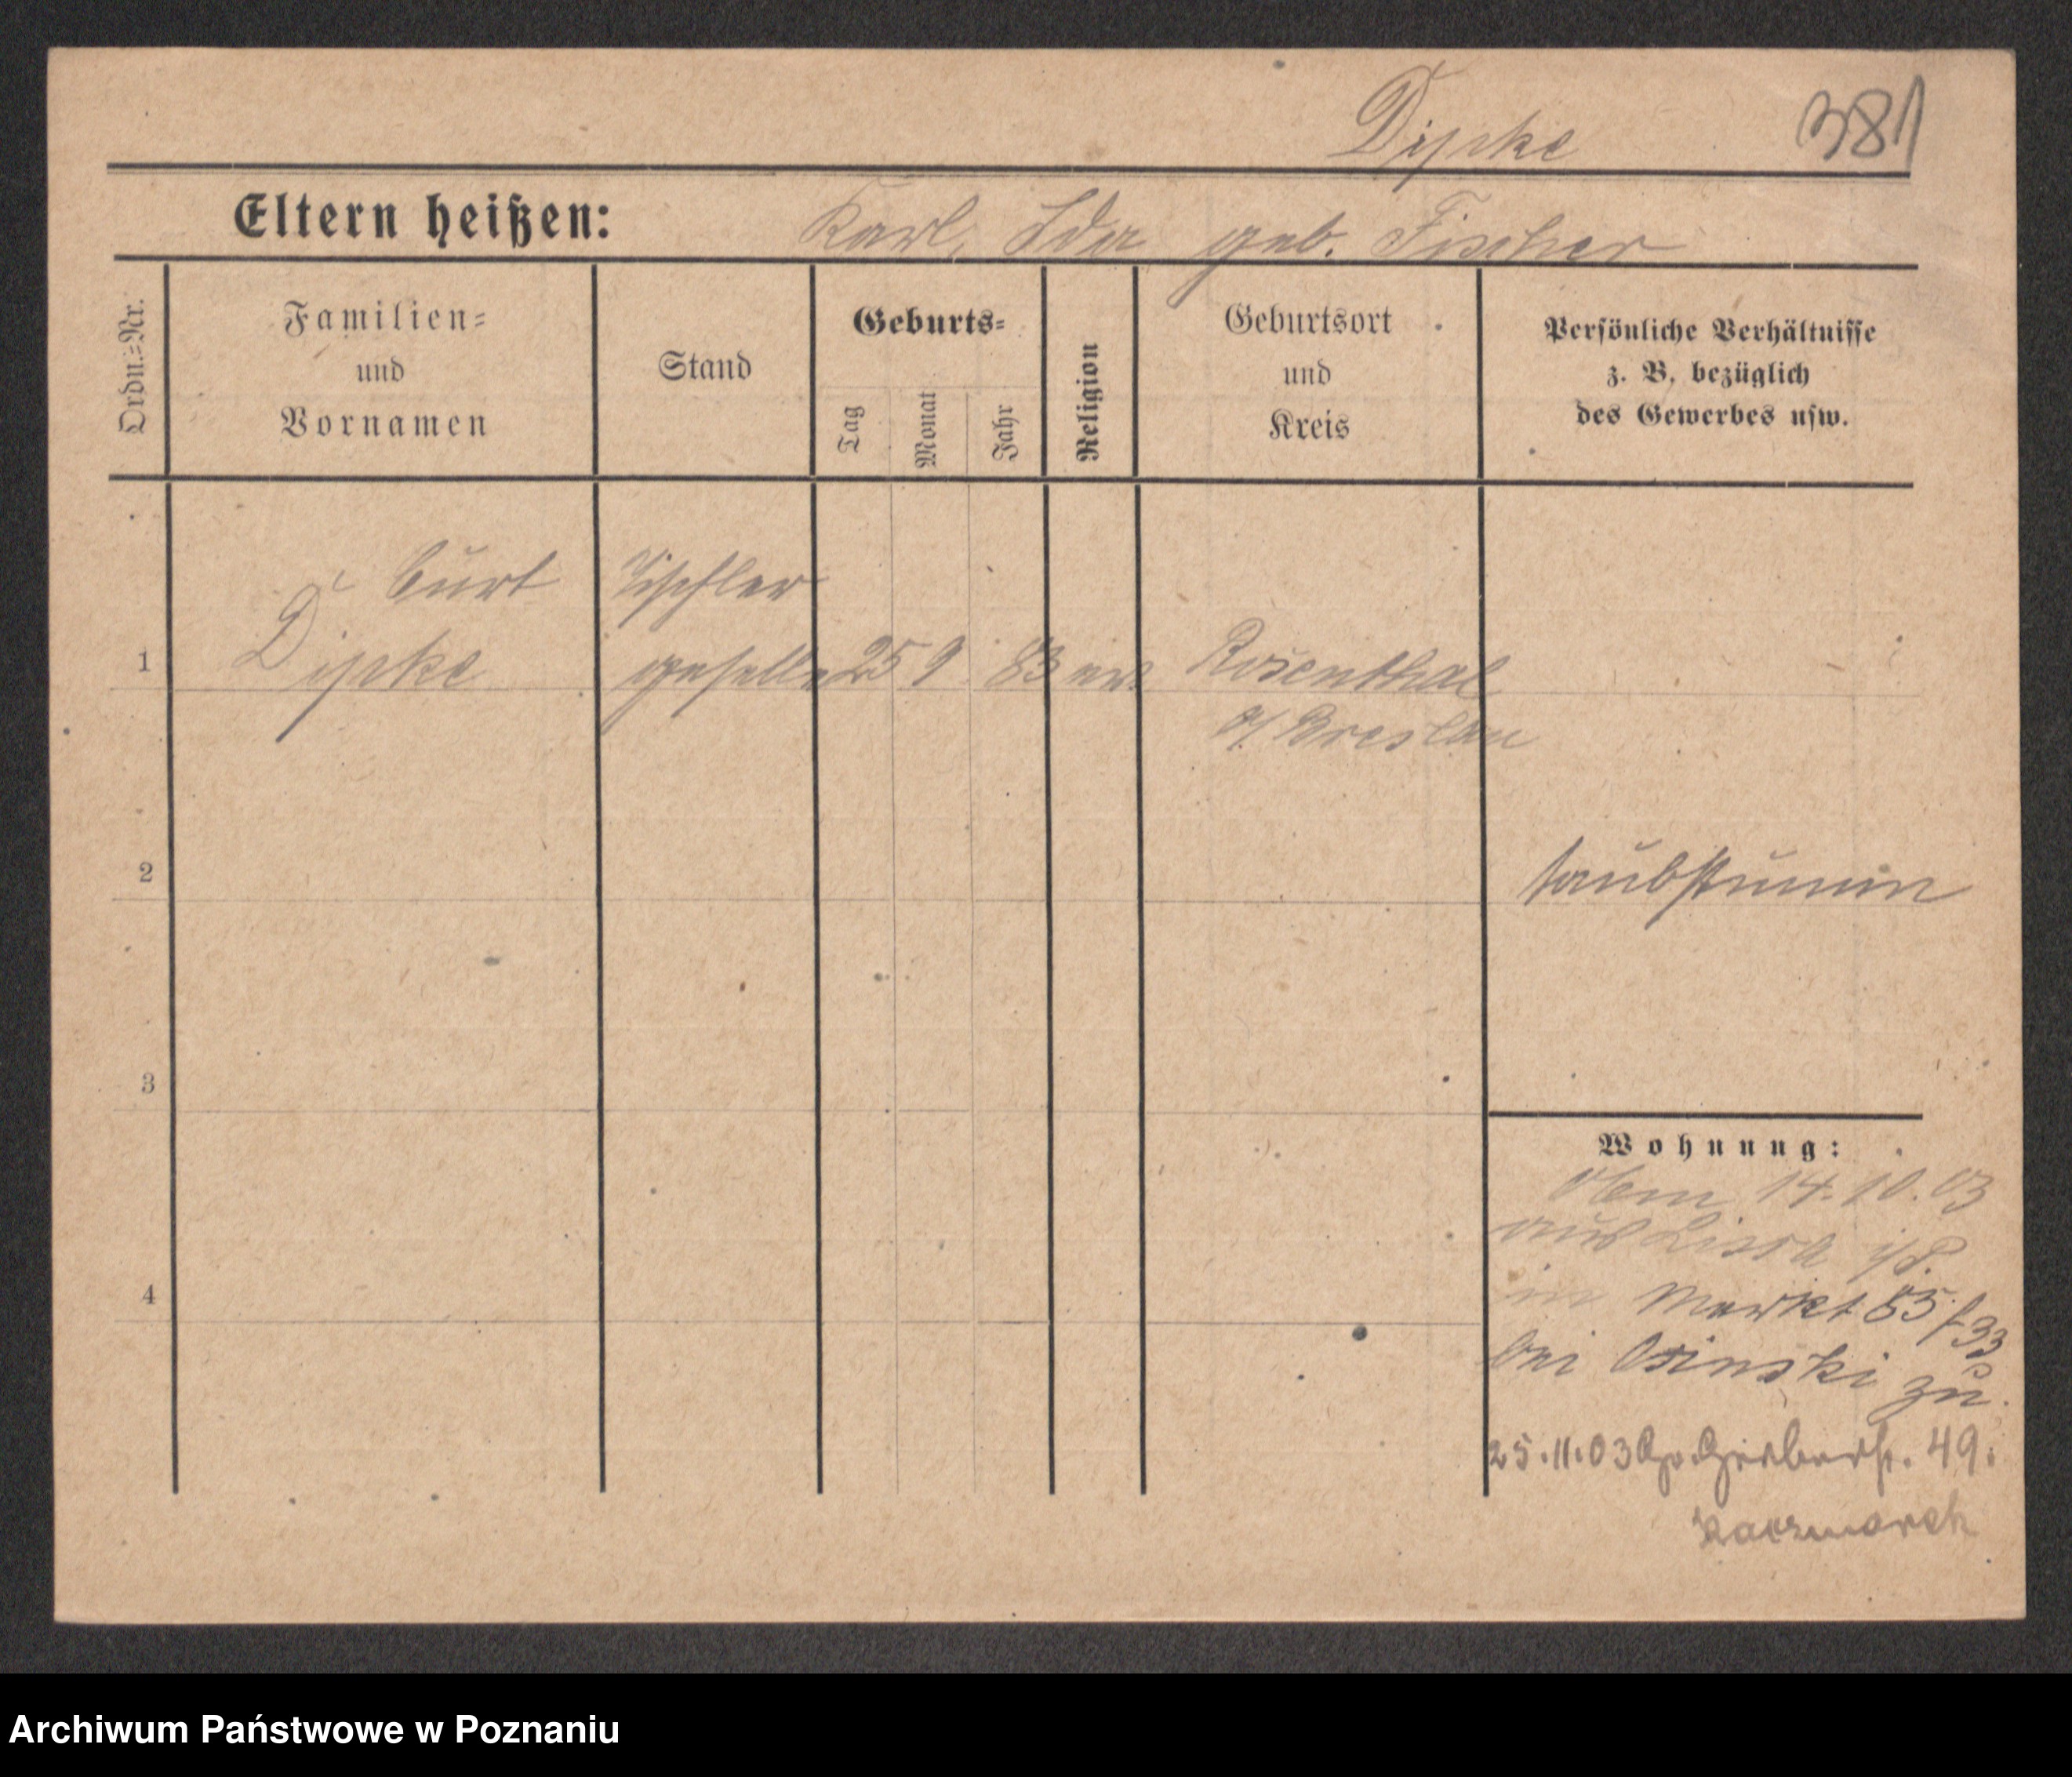 Dipke
381
Eltern heißen: Karl, Ida geb. Fischer
Ordn.=Nr.
Familien=
und
Vornamen
Stand
Geburts=
Tag
Monat
Jahr
Religion
Geburtsort
und
Kreis
Persönliche Verhältnisse
z. B. bezüglich
des Gewerbes usw.
Curt Tischler
1 Dipke geselle 25 9 83 ev. Rosenthal
Breslau
2 taubstumm
3
Wohnung:
14.10.03
aus Lissa i/P.
4 in Markt 85/
bei Osinski zu
25.11.03 Gr. Gerberstr. 49.
Kaczmarek
Archiwum Państwowe w Poznaniu